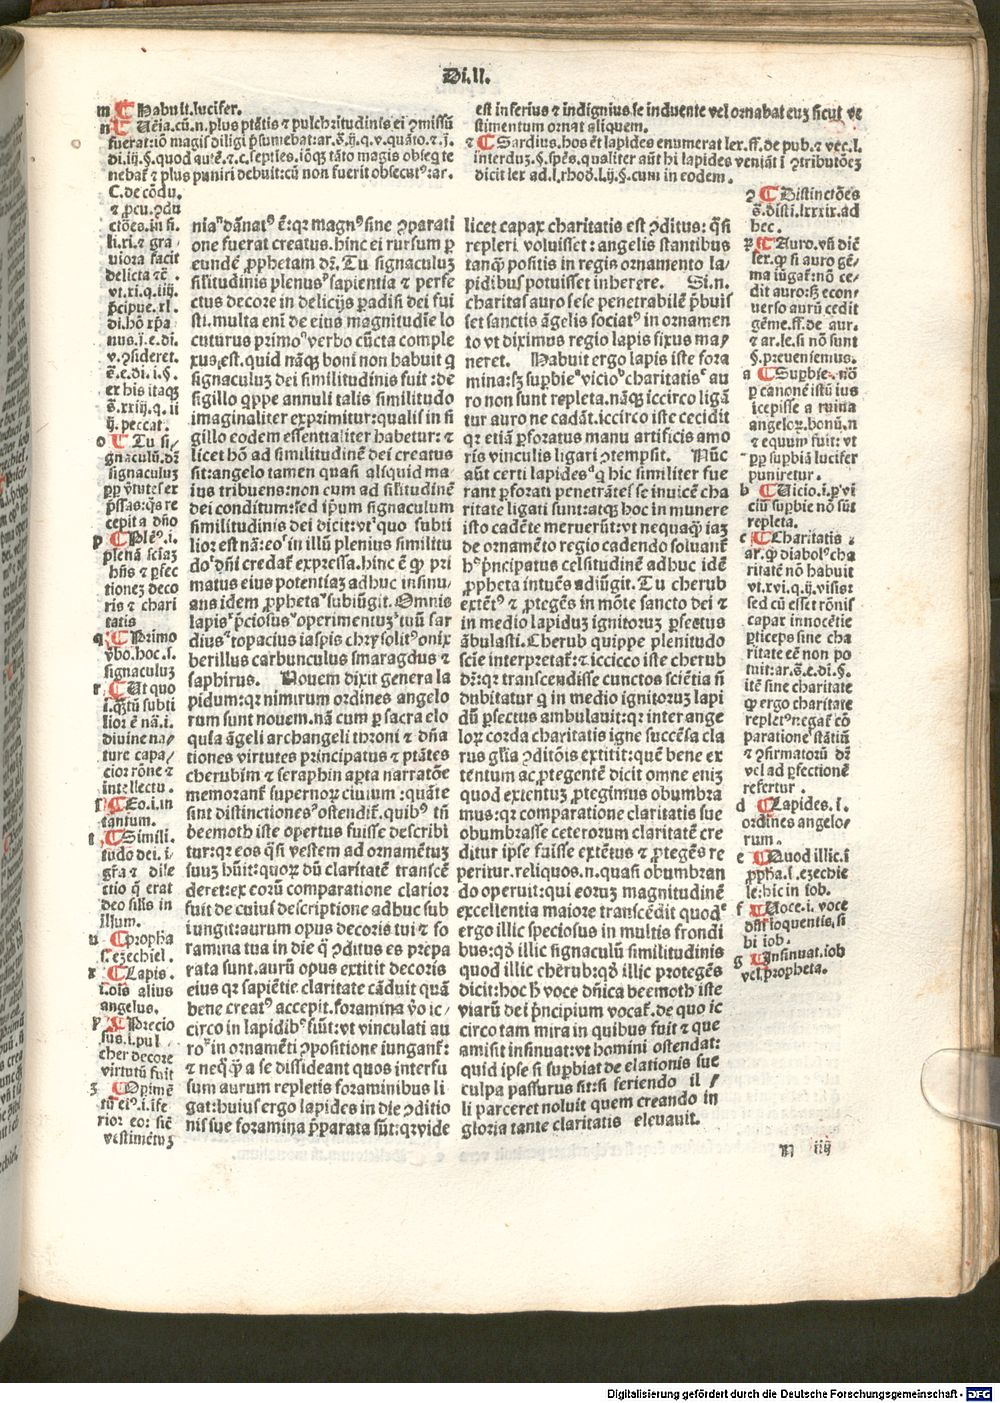 Di.II.
m ¶ Habuit.lucifer.
n ¶ Uēia.cū.n.plus ptātis ⁊ pulchritudinis ei ꝯmissū
fuerat:iō magis diligi p̄sumebat:ar.s̄.ij.q.v.quāto.⁊.j.
di.iij.§.quod autē.⁊.c.septies.iōqꝫ tāto magis obseq̄ te
nebat̄ ⁊ plus puniri debuit:cū non fuerit obsecutꝰ:ar.
C.de cōdu.
⁊ ꝓcu.ꝯdu
ctōes.in fi.
li.xi.⁊ gra
uiora facit
delicta ⁊c̄.
vt.xi.q.iiij.
p̄cipue.xl.
di.hō xp̄ia
nus.j.e.di.
v.ꝯsideret.
s̄.e.di.i.§.
ex his itaqꝫ
s̄.xxiij.q.ii
ij.peccat.
o ¶ Tu si/
gnaculū.dꝛ
signaculuꝫ
ꝓp v̄tutes ex
p̄ssas:qꝫ re
cepit a dn̄o
p ¶ Plēꝰ.i.
plenā sciaꝫ
hn̄s ⁊ ꝑfec
tioneꝫ deco
ris ⁊ chari
tatis
q ¶ Primo
v̄bo.hoc.s.
signaculuꝫ
r ¶ Ut quo
i.q̄ꝫtū subti
lior ē nā.i.
diuine na/
ture capa/
cior rōne ⁊
intellectu.
s ¶ Eo.i.in
tantum.
t ¶ Simili.
tudo dei.i.
gr̄a ⁊ dile
ctio q̄ erat
deo filis in
illum.
u ¶ propha
s.ezechiel.
x ¶ Lapis.
i.oīs alius
angelus.
y ¶ Precio
sus.i.pul
cher decore
virtutū fuit
z ¶ Opimē
tū eiꝰ.i.īfe
rior eo: sic̄
vestimētuꝫ
niaⁿ dānatꝰ ē:qꝛ magnꝰ sine ꝯparati
one fuerat creatus.hinc ei rursum ꝑ
eundē ꝓphetam dꝛ.Tu signaculuꝫ
silitudinis plenusᵖ sapientia ⁊ perfe
ctus decore in delicijs ꝑadisi dei fui
sti.multa eni de eius magnitudie lo
cuturus primoᑫ verbo cūcta comple
xus.est.quid nāqꝫ boni non habuit q
signaculuꝫ dei similitudinis fuit :de
sigillo q̄ppe annuli talis similitudo
imaginaliter exprimitur:qualis in si
gillo eodem essentialiter habetur: ⁊
licet hō ad similitudinē dei creatus
sit:angelo tamen quasi aliquid ma/
ius tribuens:non cum ad silitudinē
dei conditum:sed ipsum signaculum
similitudinis dei dicit:vtʳ quo subti
lior est nā:eoˢ in illū plenius similitu
doᵗ dn̄i credat̄ expressa.hinc ē q̄ pri
matus eius potentiaꝫ adhuc insinu/
ans idem ꝓphetaᵘ subiūgit.Omnis
lapisˣ p̄ciosusʸ operimentuꝫᶻ tuū sar
dius⁊ topacius iaspis chrysolitꝰ onix
berillus carbunculus smaragdus ⁊
saphirus. Nouem dixit genera la
pidum:qꝛ nimirum ordines angelo
rum sunt nouem.nā cum ꝑ sacra elo
quia āgeli archangeli throni ⁊ dn̄a
tiones virtutes principatus ⁊ ptātes
cherubim ⁊ seraphin aꝑta narratōe
memorant̄ supernoꝝ ciuium :quāte
sint distinctionesꝰ ostendit̄.quibꝰ tn̄
beemoth iste opertus fuisse describi
tur:qꝛ eos q̄si vestem ad ornamētuꝫ
suuꝫ hūit:quoꝝ dū claritatē transcē
deret:ex eorū comparatione clarior
fuit de cuius descriptione adhuc sub
iungit:aurum opus decoris tui ⁊ fo
ramina tua in die q̄ ꝯditus es prepa
rata sunt.aurū opus extitit decoris
eius qꝛ sapiētie claritate cāduit quā
bene creatꝰ accepit.foramina v̄o ic/
circo in lapidibꝰ sūt:vt vinculati au
roꝰ in ornamēti ꝯpositione iungant̄:
⁊ neq̄q̄ a se dissideant quos interfu
sum aurum repletis foraminibus li
gat:huius ergo lapides in die ꝯditio
nis sue foramina p̄parata sūt:qꝛvide
est inferius ⁊ indignius.se induente vel ornabat euꝫ sicut ve
stimentum ornat aliquem.
⁊ ¶ Sardius.hos et lapides enumerat lex.ff.de pub.⁊ vec.l.
interduꝫ.§.spēs.qualiter aūt hi lapides veniāt i ꝯtributōeꝫ
dicit lex ad.l.rhod.l.ij.§.cum in eodem.
licet capax charitatis est ꝯditus: q̄si
repleri voluisset : angelis stantibus
tanq̄ positis in regis ornamento la/
pidibus potuisset inherere. Si.n.
charitas auro sese penetrabilē p̄buis
set sanctis āgelis sociatꝰ in ornamen
to vt diximus regio lapis fixus ma/
neret. Habuit ergo lapis iste fora
mina:sꝫ suꝑbieᵃ vicioᵇ charitatisᶜ au
ro non sunt repleta.nāqꝫ iccirco ligā
tur auro ne cadāt.iccirco iste cecidit
qꝛ etiā ꝑforatus manu artificis amo
ris vinculis ligari ꝯtempsit. Nūc
aūt certi lapidesᵈ q̄ hic similiter fue
rant ꝑforati penetrātes se inuicē cha
ritate ligati sunt:atqꝫ hoc in munere
isto cadēte meruerūt:vt nequaq̄ iaꝫ
de ornamēto regio cadendo soluant̄
hꝰ p̄ncipatus celsitudinē adhuc idē
ꝓpheta intuēs adiūgit.Tu cherub
extētꝰ ⁊ ꝓtegēs in mōte sancto dei ⁊
in medio lapiduꝫ ignitoruꝫ ꝑfectus
ābulasti.Cherub quippe plenitudo
scie interpretat̄:⁊ iccicco iste cherub
dꝛ:qꝛ transcendisse cunctos sciētia n̄
dubitatur q in medio ignitoruꝫ lapi
dū ꝑfectus ambulauit:qꝛ inter ange
loꝝ corda charitatis igne succēsa cla
rus gl̄ia ꝯditōis extitit:quē bene ex
tentum ac ꝓtegentē dicit omne eniꝫ
quod extentuꝫ ꝓtegimus obumbra
mus:qꝛ comparatione claritatis sue
obumbrasse ceterorum claritatē cre
ditur ipse fuisse extētus ⁊ ꝓtegēs re
peritur.reliquos.n.quasi obumbran
do operuit:qui eoruꝫ magnitudinē
excellentia maiore transcēdit quodᵉ
ergo illic speciosus in multis frondi
bus:qd̄ illic signaculū similitudinis
quod illic cherub:qd̄ illic protegēs
dicit:hoc h̄ voce dn̄ica beemoth iste
viarū dei p̄ncipium vocat̄.de quo ic
circo tam mira in quibus fuit ⁊ que
amisit insinuat:vt homini ostendat:
quid ipse si suꝑbiat de elationis sue
culpa passurus sit:si feriendo il /
li parceret noluit quem creando in
gloria tante claritatis eleuauit.
¶ Distinctōes
s̄.disti.lxxix.ad
hec.
¶ Auro.vn̄ diē
ser.q̄ si auro gē/
ma iūgat̄:nō ce/
dit auro:sꝫ econ/
uerso aurū cedit
gēme.ff.de aur.
⁊ ar.le.si nō sunt
§.preuensemus.
a ¶ Supbie.nō
ꝑ canonē istū ius
icepisse a ruina
angeloꝝ.bonū.n
⁊ equum fuit: vt
ꝓp suꝑbiā lucifer
puniretur.
b ¶ Uicio.i.ꝑ vi
ciū supbie nō sūt
repleta.
c ¶ Charitatis
ar.q̄ diabolꝰ cha
ritatē nō habuit
vt.xvi.q.ij.visis:
sed cū esset rōnis
capax innocētie
ꝑticeps sine cha
ritate eē non po
tuit:ar.s̄.e.di.§.
itē sine charitate
q̄ ergo charitate
repletꝰnegat̄ cō
paratione stātiū
⁊ ꝯfirmatorū dꝛ
vel ad ꝑfectionē
refertur .
d ¶ Lapides.s.
ordines angelo/
rum.
e ¶ Quod illic.i
ꝓpha.s.ezechie
le:hic in iob.
f ¶ Uoce.i.voce
dn̄i loquentis.si
bi iob.
g ¶ Insinuat.iob
vel.propheta.
N iiij
Digitalisierung gefördert durch die Deutsche Forschungsgemeinschaft - DFG